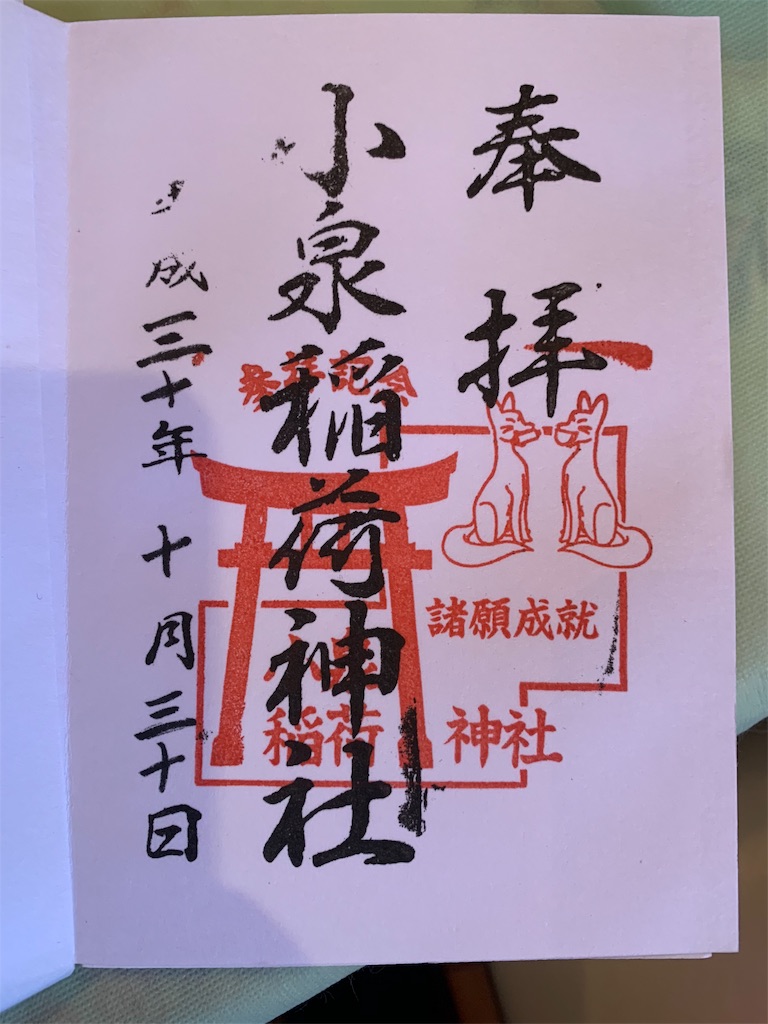 奉拝
小泉稲荷神社
成三十年 十月三十日
参拝記念
諸願成就
稲荷神社